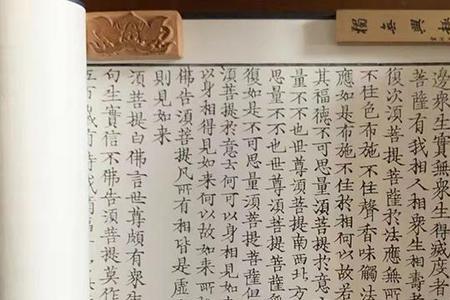 邊衆生實無衆生得滅度者
菩薩有我相人相衆生相壽
復次須菩提菩薩於法應無所
不住色布施不住聲香味觸法
應如是布施不住於相何以故若
其福德不可思量須菩提於意
量不不也世尊須菩提南西北方
思量不不也世尊須菩提菩薩
復如是不可思量須菩提菩薩但
須菩提於意云何可以身相見如
以身相得見如來何以故如來所
佛告須菩提凡所有相皆是虛
則見如來
須菩提白佛言世尊頗有衆生
句生實信不佛告須菩提莫作
五百歲有持戒修福